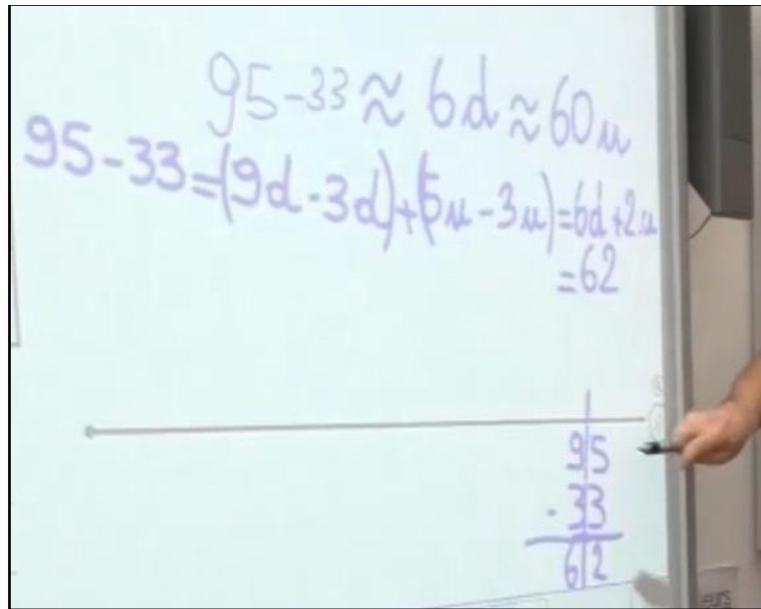 95-33 ≈ 6d ≈ 60u
95-33=(9d-3d)+(5u-3u)=6d+2u
=62
95
- 33
62